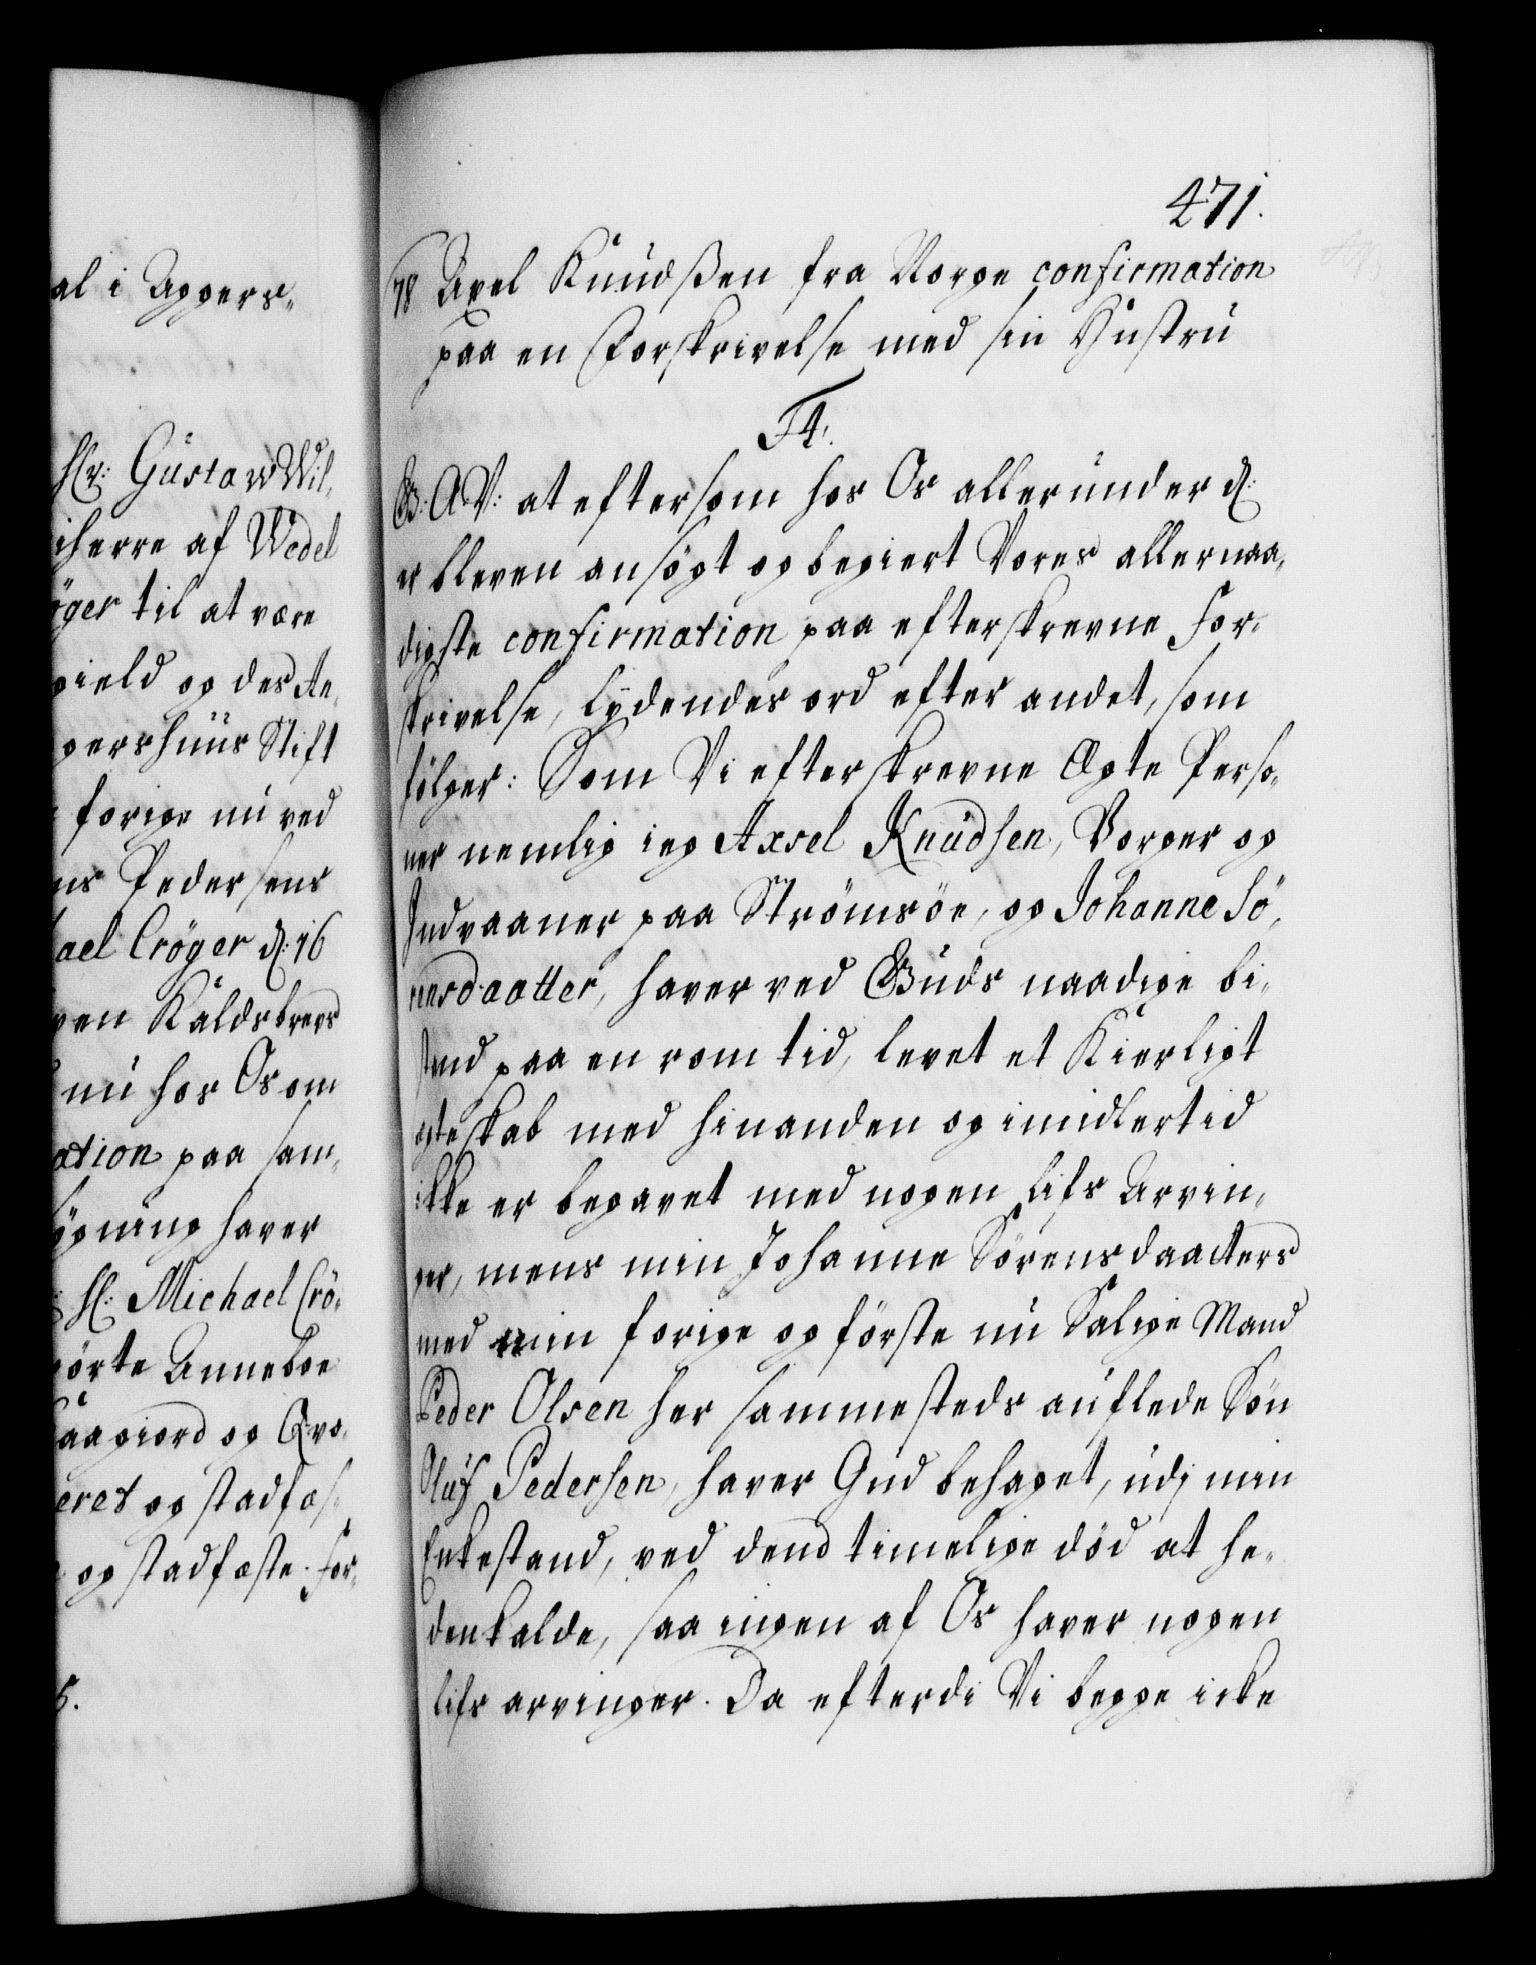 al i Aggers-
Hr: Gustaw Wil-
iherre af Wedel
öger til at være
gield og des An-
gershuus Stift
forige nu ved
ns Pedersens
ael Cröger d: 16
ven Kaldsbrevs
nu hos Os om
ation paa sam-
ygning haver
Hr: Michael Crö-
hörte Anneboe
aagiord og Qvo-
eret og stadfæs-
og stadfæste. For-
5.
471.
78 Axel Knudßen fra Norge confirmation
paa en Forskrivelse med sin Hustru
F4.
G: A V: at eftersom hos Os allerunder d:
er bleven ansögt og begiert Vores allernaa-
digste confirmation paa efterskrevne For-
skrivelse, lydendes ord efter andet, som
fölger: Som Vi efterskrevne Ægte Perso-
ner nemlig ieg Axsel Knudsen, Borger og
Indvaaner paa Strömsöe, og Johanne Sö-
rensdaatter, haver ved Guds naadige bi-
stand paa en rom tid, levet et Kierligt
ægteskab med hinanden og imidlertid
ikke er begavet med nogen Lifs Arvin-
ger, mens min Johanne Sörensdaatters
med min forige og förste nu Salige Mand
Peder Olsen her sammesteds auflede Sön
Oluf Pedersen, haver Gud behaget, udj min
Enkestand, ved dend timelige död at he-
denkalde, saa ingen af Os haver nogen
lifs arvinger. Da efterdi Vi begge icke